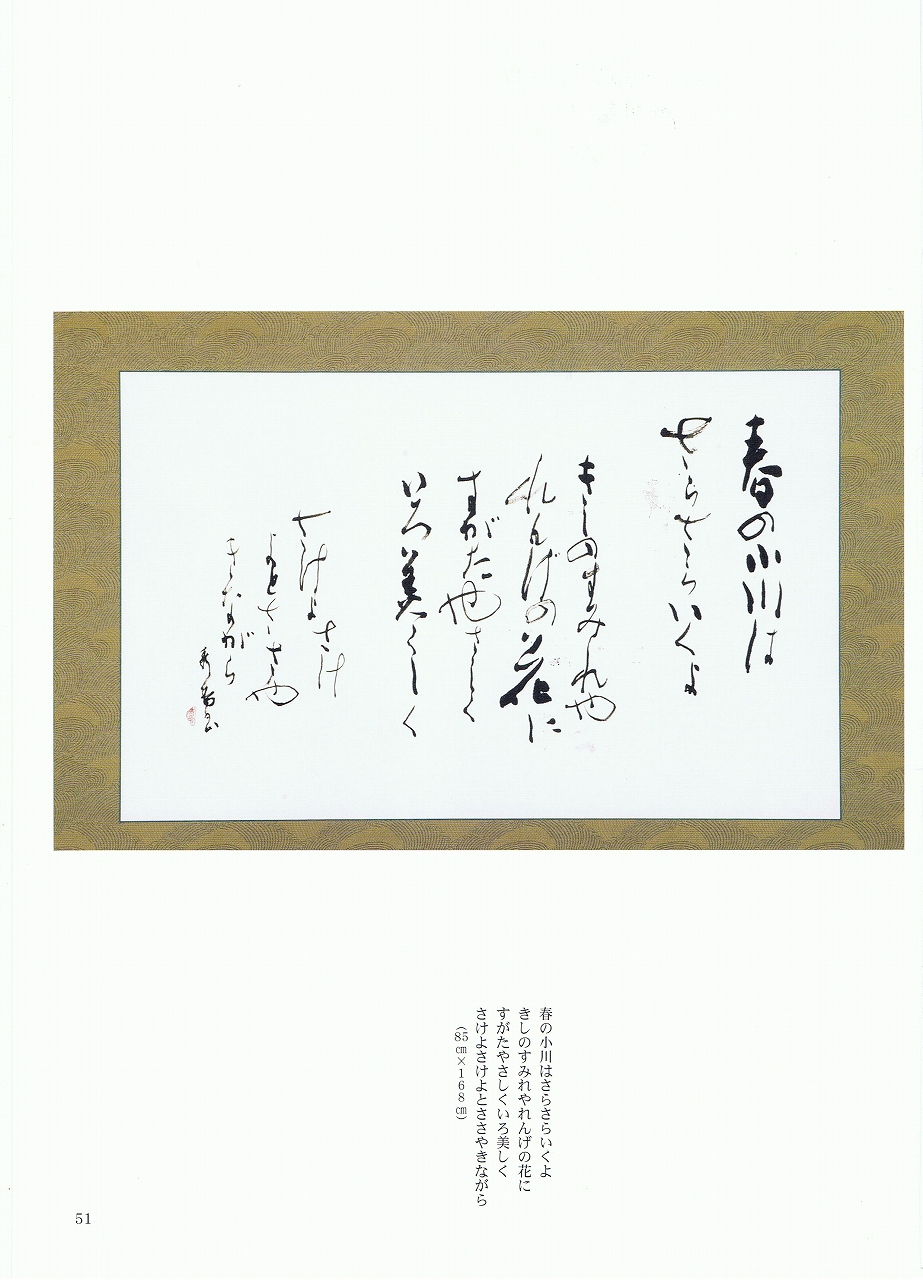 春の小川は
さらさらいくよ
きしのすみれや
れんげの花に
すがたやさしく
いろ美しく
さけよさけ
よとささや
きながら
春の小川はさらさらいくよ
きしのすみれやれんげの花に
すがたやさしくいろ美しく
さけよさけよとささやきながら
(85㎝×168㎝)
51